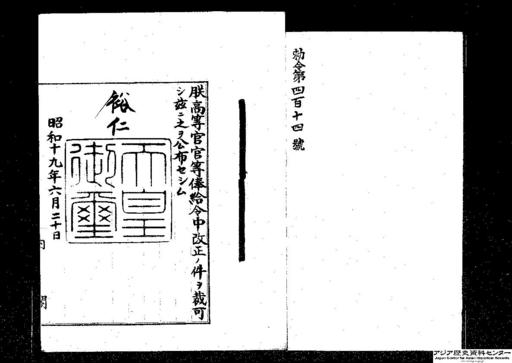 勅令第四百十四號
朕高等官官等俸給令中改正ノ件ヲ裁可
シ茲ニ之ヲ公布セシム
裕仁
天皇
御璽
昭和十九年六月二十日
内閣
アジア歴史資料センター
Japan Center for Asian Historical Records